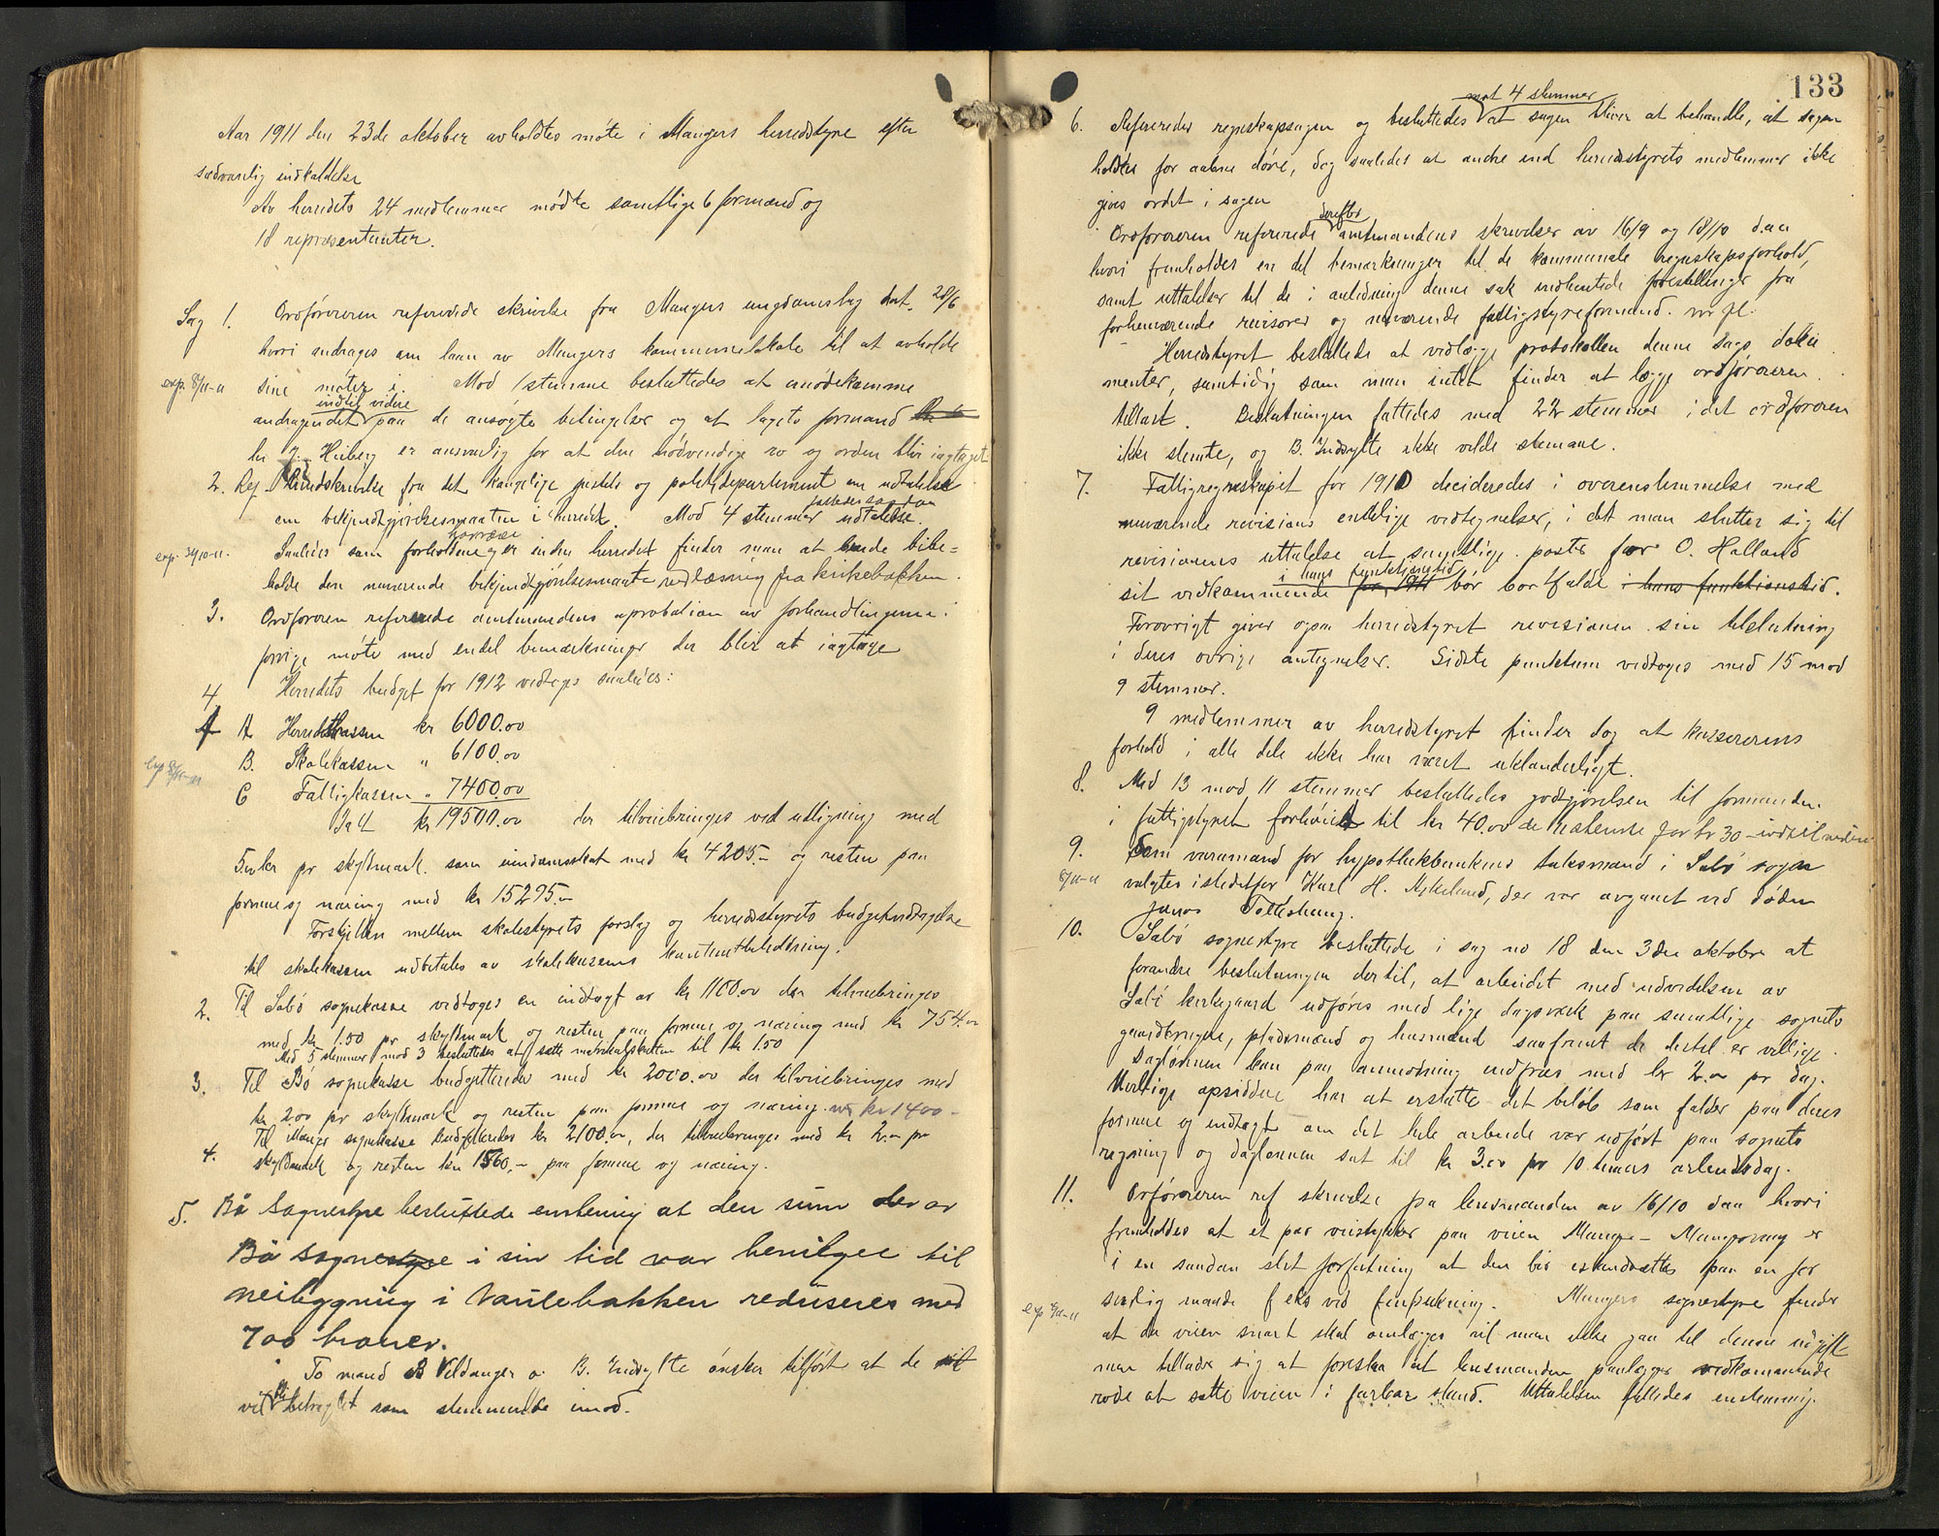 Aar 1911 den 23de oktober avholdtes møte i Mangers herredstyre efter
sædvanlig indkaldelse
Av herredets 24 medlemmer mødte samtlige 6 formænd og
18 repræsentanter.
Sag 1. Ordføreren refererede skrivelse fra Mangers ungdomslag dat. 28/6
hvori andrages om laan av Mangers kommunelokale til at avholde
exp. 8/11-11 sine møter i. Mod 1 stemme besluttedes at imødekomme
indtil videre
andragendet paa de ansøgte betingelser og at lagets formand
hr J. Heiberg er ansvarlig for at den nødvendige ro og orden blir iagttaget
2. Ref. Rundskrivelse fra det kongelige justits og politidepartement om udtalelse
om bekjendtgjørelsesmaaten i herredet. Mod 4 stemmer udtaltes.
exp. 30/10-11. Saaledes som forholdene er inden herredet finder man at burde bibe=
holde den nuværende bekjendtgjørelsesmaate ved læsning fra kirkebakken.
3. Ordføreren refererede amtmandens aprobation av forhandlingerne i
forrige møte med endel bemærkninger der blir at iagttage
4 Herredets budget for 1912 vedtoges saaledes:
1 A Herredskassen kr 6000.00
B. Skolekassen " 6100.00
C Fattigkassen " 7400.00
Ialt kr 19500.00 der tilveiebringes ved utligning med
5. kr pr skyldmark som eiendomsskat med kr 4205.- og resten paa
formue og næring med kr 15295.-
Forskjellen mellem skolestyrets forslag og herredsstyrets budgetvedtagelse
til skolekassen udbetales av skolekassens kontantbeholdning.
2. Til Sæbø sognekasse vedtoges en indtægt av kr 1100.00 der tilveiebringes
med kr 1.50 pr skyldmark og resten paa formue og næring med kr 754.00
Med 5 stemmer mod 3 besluttedes at sætte matrikulskatten til kr 1.50
3. Til Bø sognekasse budgetteredes med kr 2000.00 der tilveiebringes med
kr 2.00 pr skyldmark og resten paa formue og næring kr 1400-
4. Til Manger sognekasse budgetteredes kr 2100.00, der tilveiebringes med kr 2.00 pr
skyldmark og resten kr 1560.- paa formue og næring.
5. Bø Sognestyre besluttede enstemig at den sum der av
Bø Sognestyre i sin tid var beviliget til
veibygging i Vaulebakken reduseres med
700 kroner.
To mand B Vildanger o B. Indsylte ønsker tilført at de
vil bli betragtet som stemmende imod.
133
mot 4 stemmer
6. Refereredes regnskapssagen og besluttedes at sagen bliver at behandle, at sagen
holdes for aabne døre, dog saaledes at andre end herredsstyrets medlemmer ikke
gives ordet i sagen
derefter
Ordføreren refererede amtmandens skrivelser av 16/9 og 18/10 d.aa
hvori fremholdes en del bemerkninger til de kommunale regnskapsforhold,
samt uttalelser til de i anledning denne sak indhentede forestillinger fra
forhenværende revisorer og nuværende fattigstyreformand.
Herredsstyret besluttede at vedlægge protokollen denne sags doku
menter, samtidig som man intet finder at lægge ordføreren
tillast. Beslutningen fattedes med 22 stemmer i det ordføreren
ikke stemte, og B. Indsylte ikke vilde stemme.
7. Fattigregnskapet for 1910 decideredes i overenstemmelse med
nuværende revisions endelige vedtegnelser, i det man slutter sig til
revisionens uttalelse at samtlige poster for O. Halland
i hans funktionstid
sit vedkommende for 1911 bør bortfalde i hans funktionstid.
Forøvrigt giver ogsaa herredstyret revisionen sin tilslutning
i deres øvrige antegnelser. Sidste punktum vedtoges med 15 mod
9 stemmer.
9 medlemmer av herredsstyret finder dog at kassererens
forhold i alle dele ikke har været uklanderligt.
8. Med 13 mod 11 stemmer besluttedes godtgjørelsen til formanden
i fattigstyret forhøiet til kr 40.00 de næstenste for kr 30 - indtil videre
9. Som varamand for hypothekbankens taksmand i Sæbø sogn
8/11-11 valgtes istedetfor Karl H. Nykelund, der var avgaaet ved døden
Toftestung.
10. Sæbø sognestyre besluttede i sag no 18 den 3die oktober at
forandre beslutningen dertil, at arbeidet med udvidelsen av
Sæbø kirkegaard udføres med lige dagsværk paa samtlige sognets
gaardbrugere, pladsmænd og husmænd saafremt de dertil er villige.
Daglønnen kan paa anmodning utføres med kr 2.00 pr dag.
Uvillige opsiddere har at erstatte det beløb som falder paa deres
formue og indtægt om det hele arbeide var udført paa sognets
regning og daglønnen sat til kr 3.00 pr 10 timers arbeidsdag.
11. Ordføreren ref skrivelse fra lensmanden av 16/10 d.aa hvori
fremholdes at et par veistykker paa veien Manger - Mangervaag er
i en saadan slet forfatning at den bør istandsættes paa en for
exp 8/11-11 svarlig maade f eks ved finpukning. Mangers sognestyre finder
at da veien snart skal omlægges vil man ikke gaa til denne udgift
men tillader sig at foreslaa at lensmanden paalægger vedkommende
rode at sætte veien i farbar stand. Uttalelsen fattedes enstemmig.